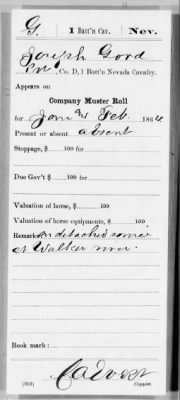 G. 1 Batt'n Cav. Nev.
Joseph Good
Pvt, Co. D, 1 Batt'n Nevada Cavalry.
Appears on
Company Muster Roll
for Jan & Feb., 1864
Present or absent absent
Stoppage, $ 100 for
Due Gov't $ 100 for
Valuation of horse, $ 100
Valuation of horse equipments, $ 100
Remarks: on detached service
at Walker river
Book mark:
(358) Copyist.